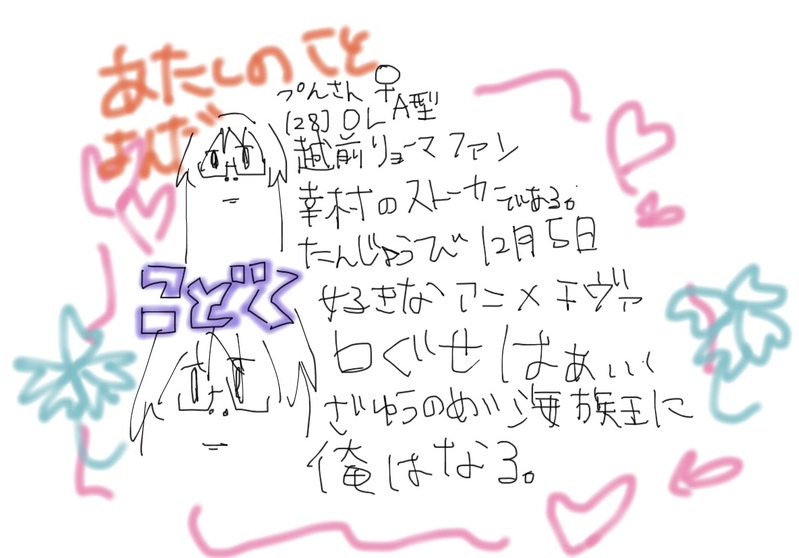 あたしのこと
よんだ
ぷんさん ♀
[28] OL A型
越前リョーマファン
幸村のストーカーである。
たんじょうび 12月5日
好きなアニメ エヴァ
口ぐせ はぁぃぃ
ざゆうのめい 海族王に
俺はなる。
こどく